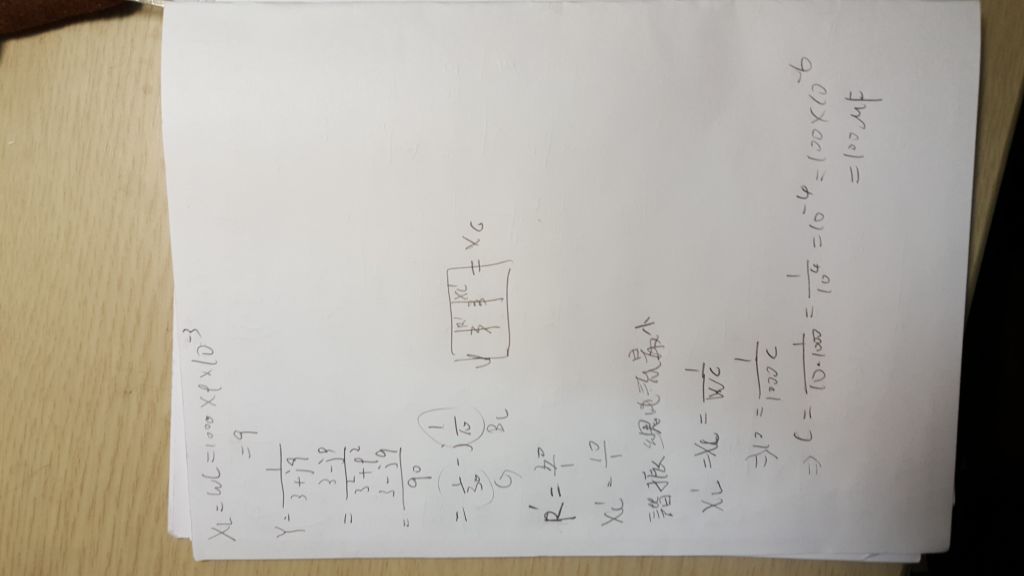 XL = WL = 1000 × 9 × 10^-3
= 9
Y = 1/(3+j9)
= (3-j9)/(3²+9²)
= (3-j9)/90
= 1/30 - j 1/10
G BL
R' XL' = XC
R' =
XL' =
諧振 總电流最小
XL' = XC = 1/WC
⇒ 10 = 1/1000C
⇒ C = 1/(10·1000) = 1/10^4 = 10^-4 = 100×10^-6
= 100 MF